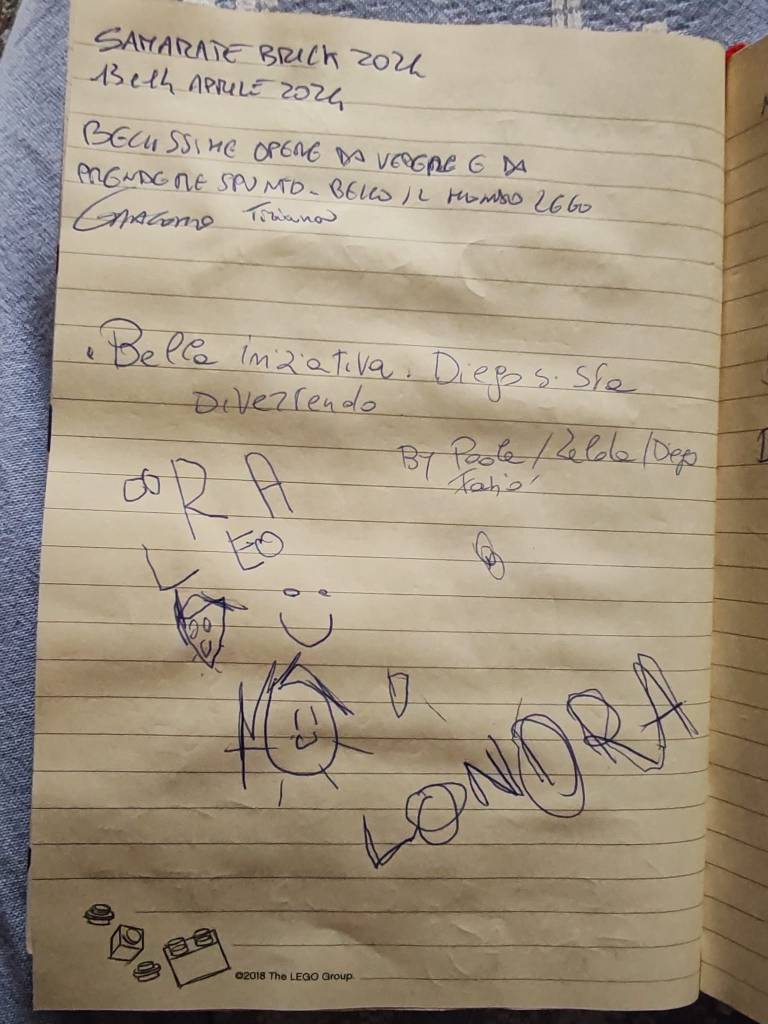 SAMARATE BRICK 2024
13 e 14 APRILE 2024
BELLISSIME OPERE DA VEDERE E DA
PRENDERE SPUNTO - BELLO IL MONDO LEGO
GIACOMO Tiziano
. Bella iniziativa. Diego s. Sta
DIVERTENDO
By Paola / Zelda / Diego
Fabio
RA
LEO
LONDRA
©2018 The LEGO Group